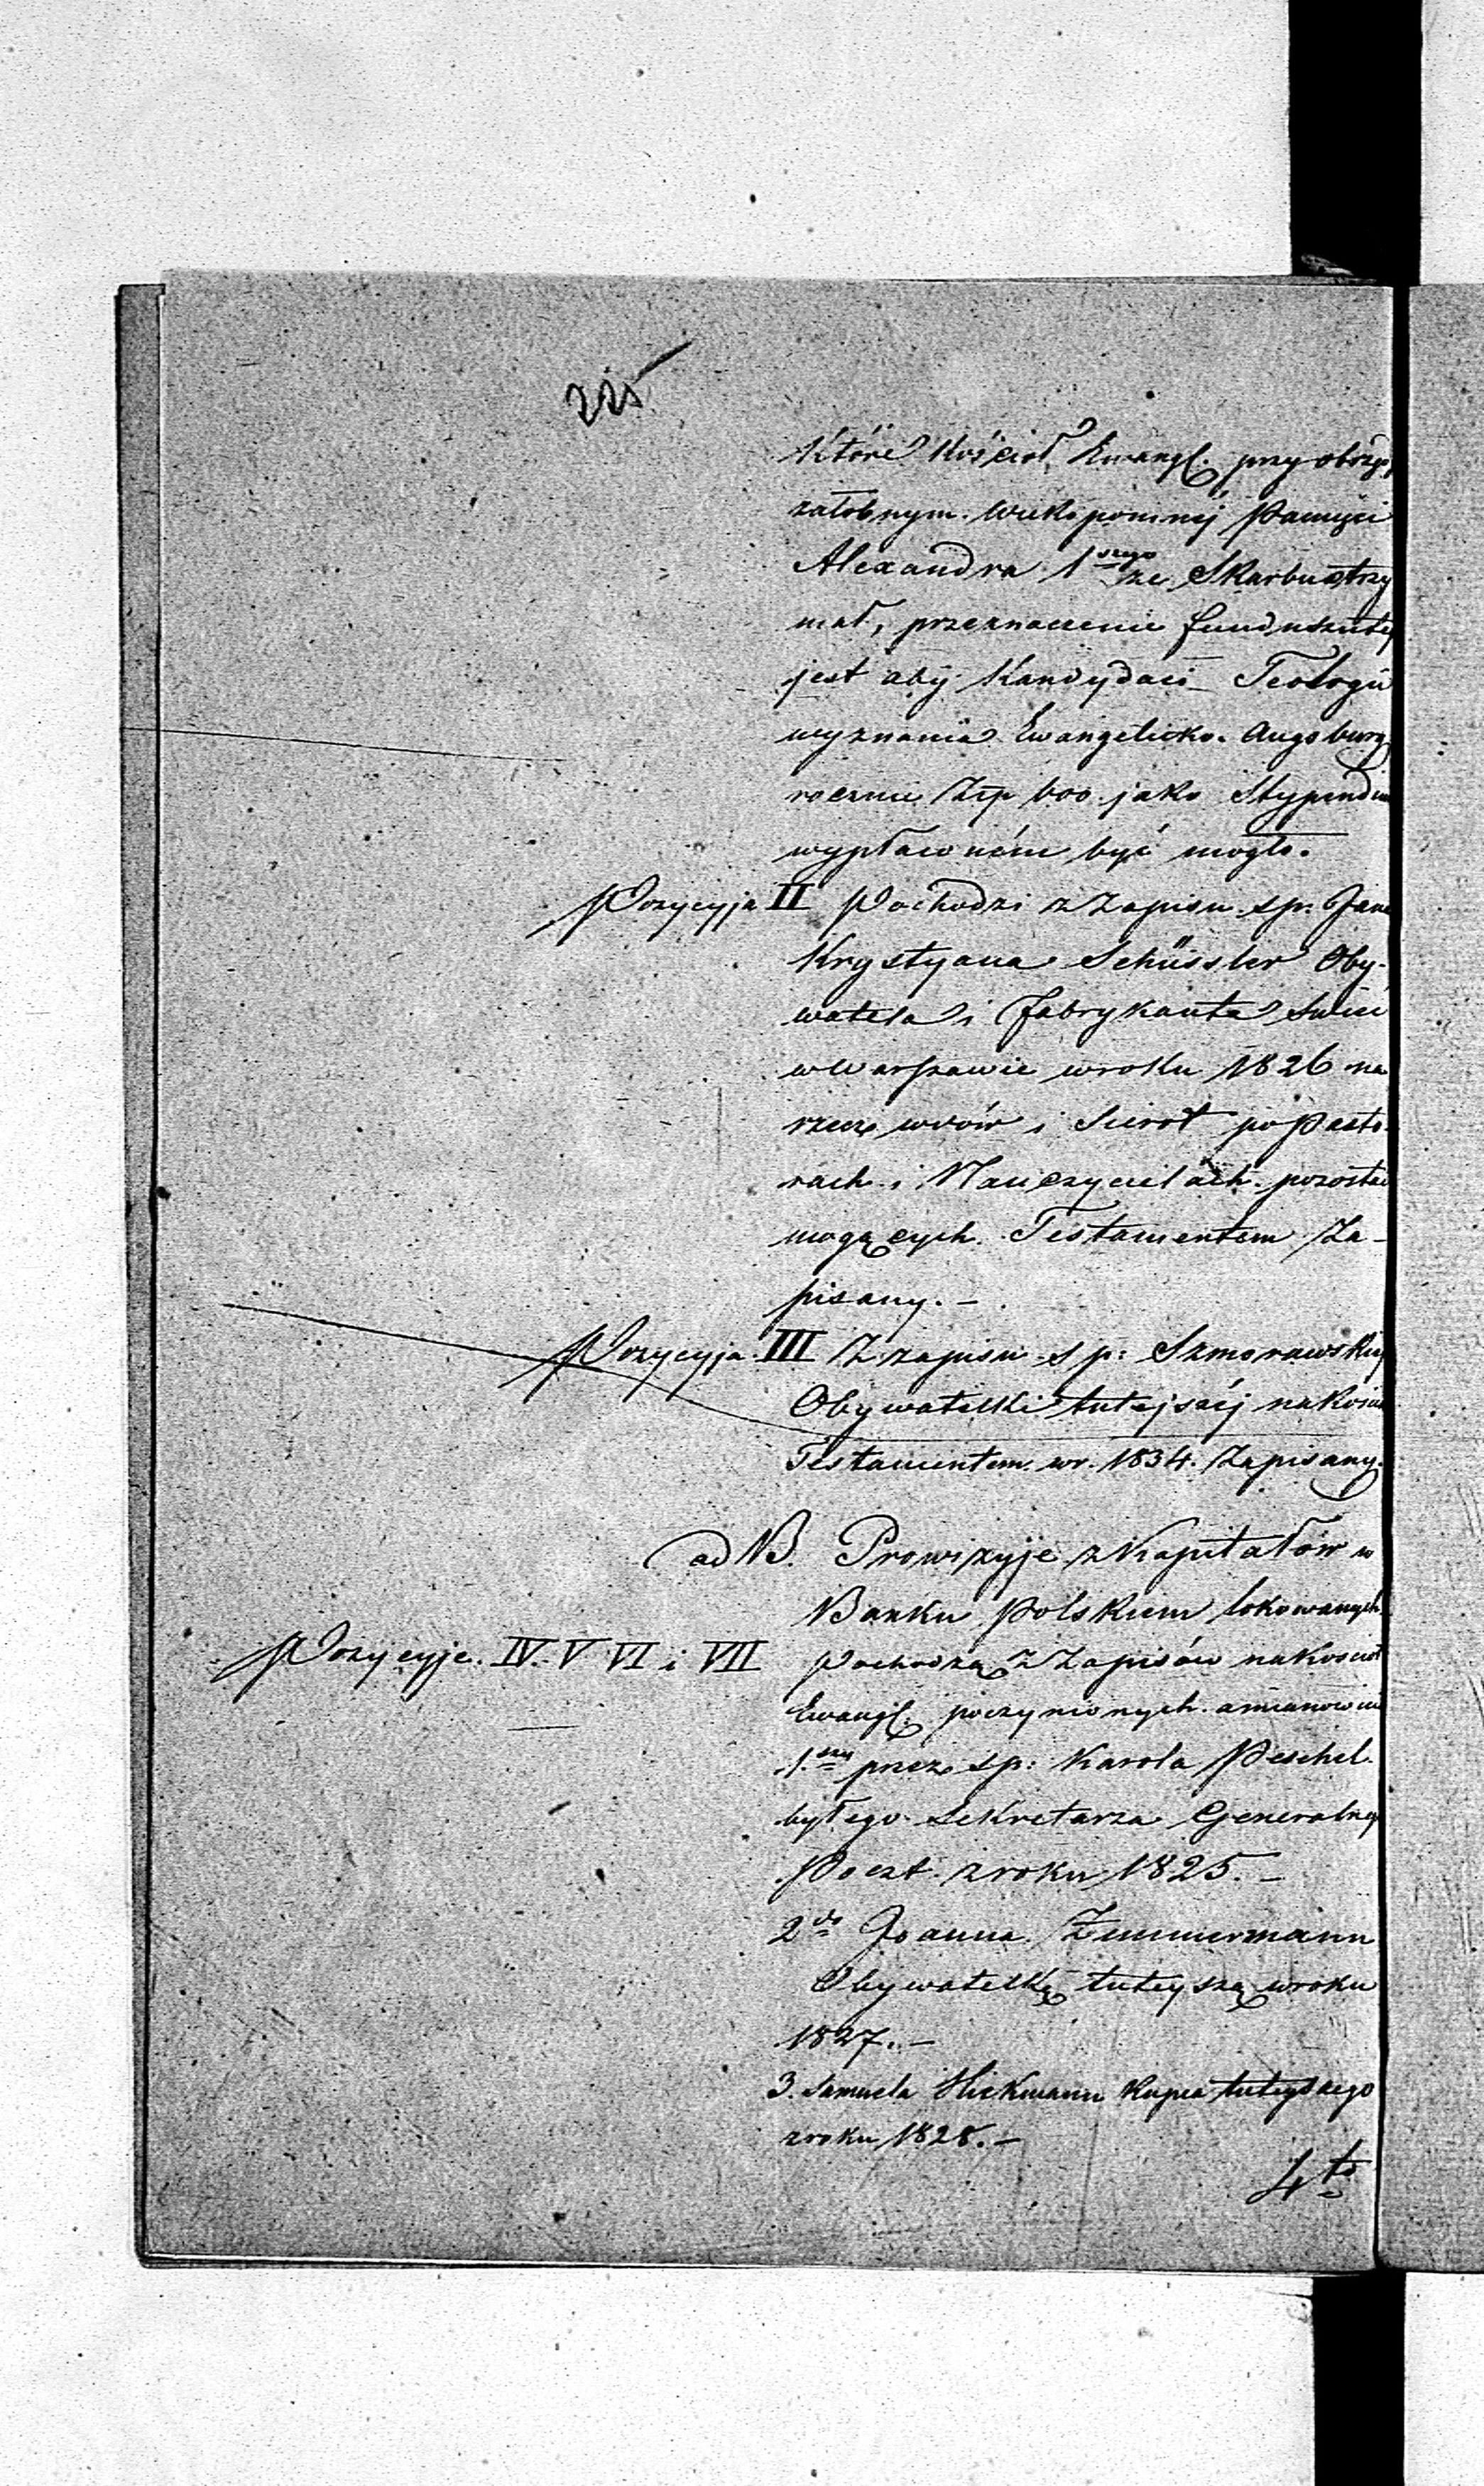 225
które Kościoł Ewangl. przy obrzę
załobnym wiekopomnéj Pamięci
Alexandra 1szego ze Skarbu otrzy
mał, przeznaczenie funduszu te
jest aby Kandydaci Teologii
wyznania Ewangelicko. Augsburg.
rocznie Złp 600 jako Stypendiu
wypłaconém być mogło.
Pozycyja II Pochodzi z Zapisu sp. Jana
Krystyana Schüssler Oby-
watela i Fabrykanta Świec
w Warszawie w roku 1826 na
rzecz wdów i Sierot po Pasto-
rach i Nauczycielach pozostać
mogących Testamentem Za-
pisany. –
Pozycyja III Z zapisu sp: Szmorawskiej
Obywatelki tutejszéj na Kościoł
Testamentem w r. 1834. Zapisany.
ad B. Prowizyje z Kapitałów w
Banku Polskiem lokowanych
Pozycyje. IV. V VI i VII Pochodzą z Zapisów na Kościoł
Ewangl. poczynionych a mianowicie
1.szy przez sp: Karola Peschel
byłego Sekretarza Generalneg
Poczt z roku 1825. –
2do Joanna Zimmermann
Obywatelkę tuteyszą w roku
1827. –
3. Samuela Hickmann Kupca tuteyszego
z roku 1828. –
4to